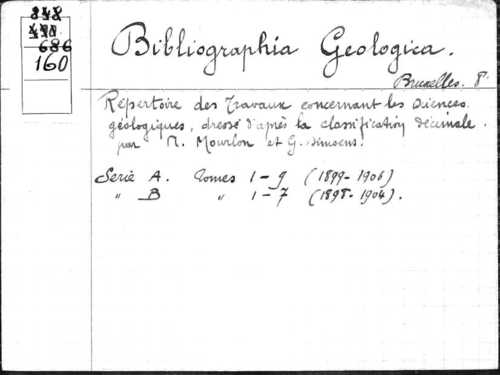 848
490
686
160
Bibliographia Geologica.
Bruxelles. 8°
Répertoire des Travaux concernant les Sciences
géologiques, dressé d'après la classification décimale.
par M. Mourlon et G. Simoens.
Serié A. Tomes 1-9 (1899-1906)
" B " 1-7 (1898-1904).